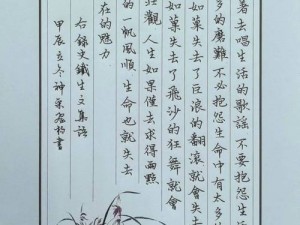 著去唱生活的歌謠 不要抱怨生活
多的磨難 不必抱怨生命中有太多
如菓失去了巨浪的翻滚就會失
如菓失去了飛沙的狂舞就會
壯觀 人生如果僅去求得兩點
的一帆風順 生命也就失去
在的魅力
右錄史鐵生文集語
甲辰立冬神采居 書